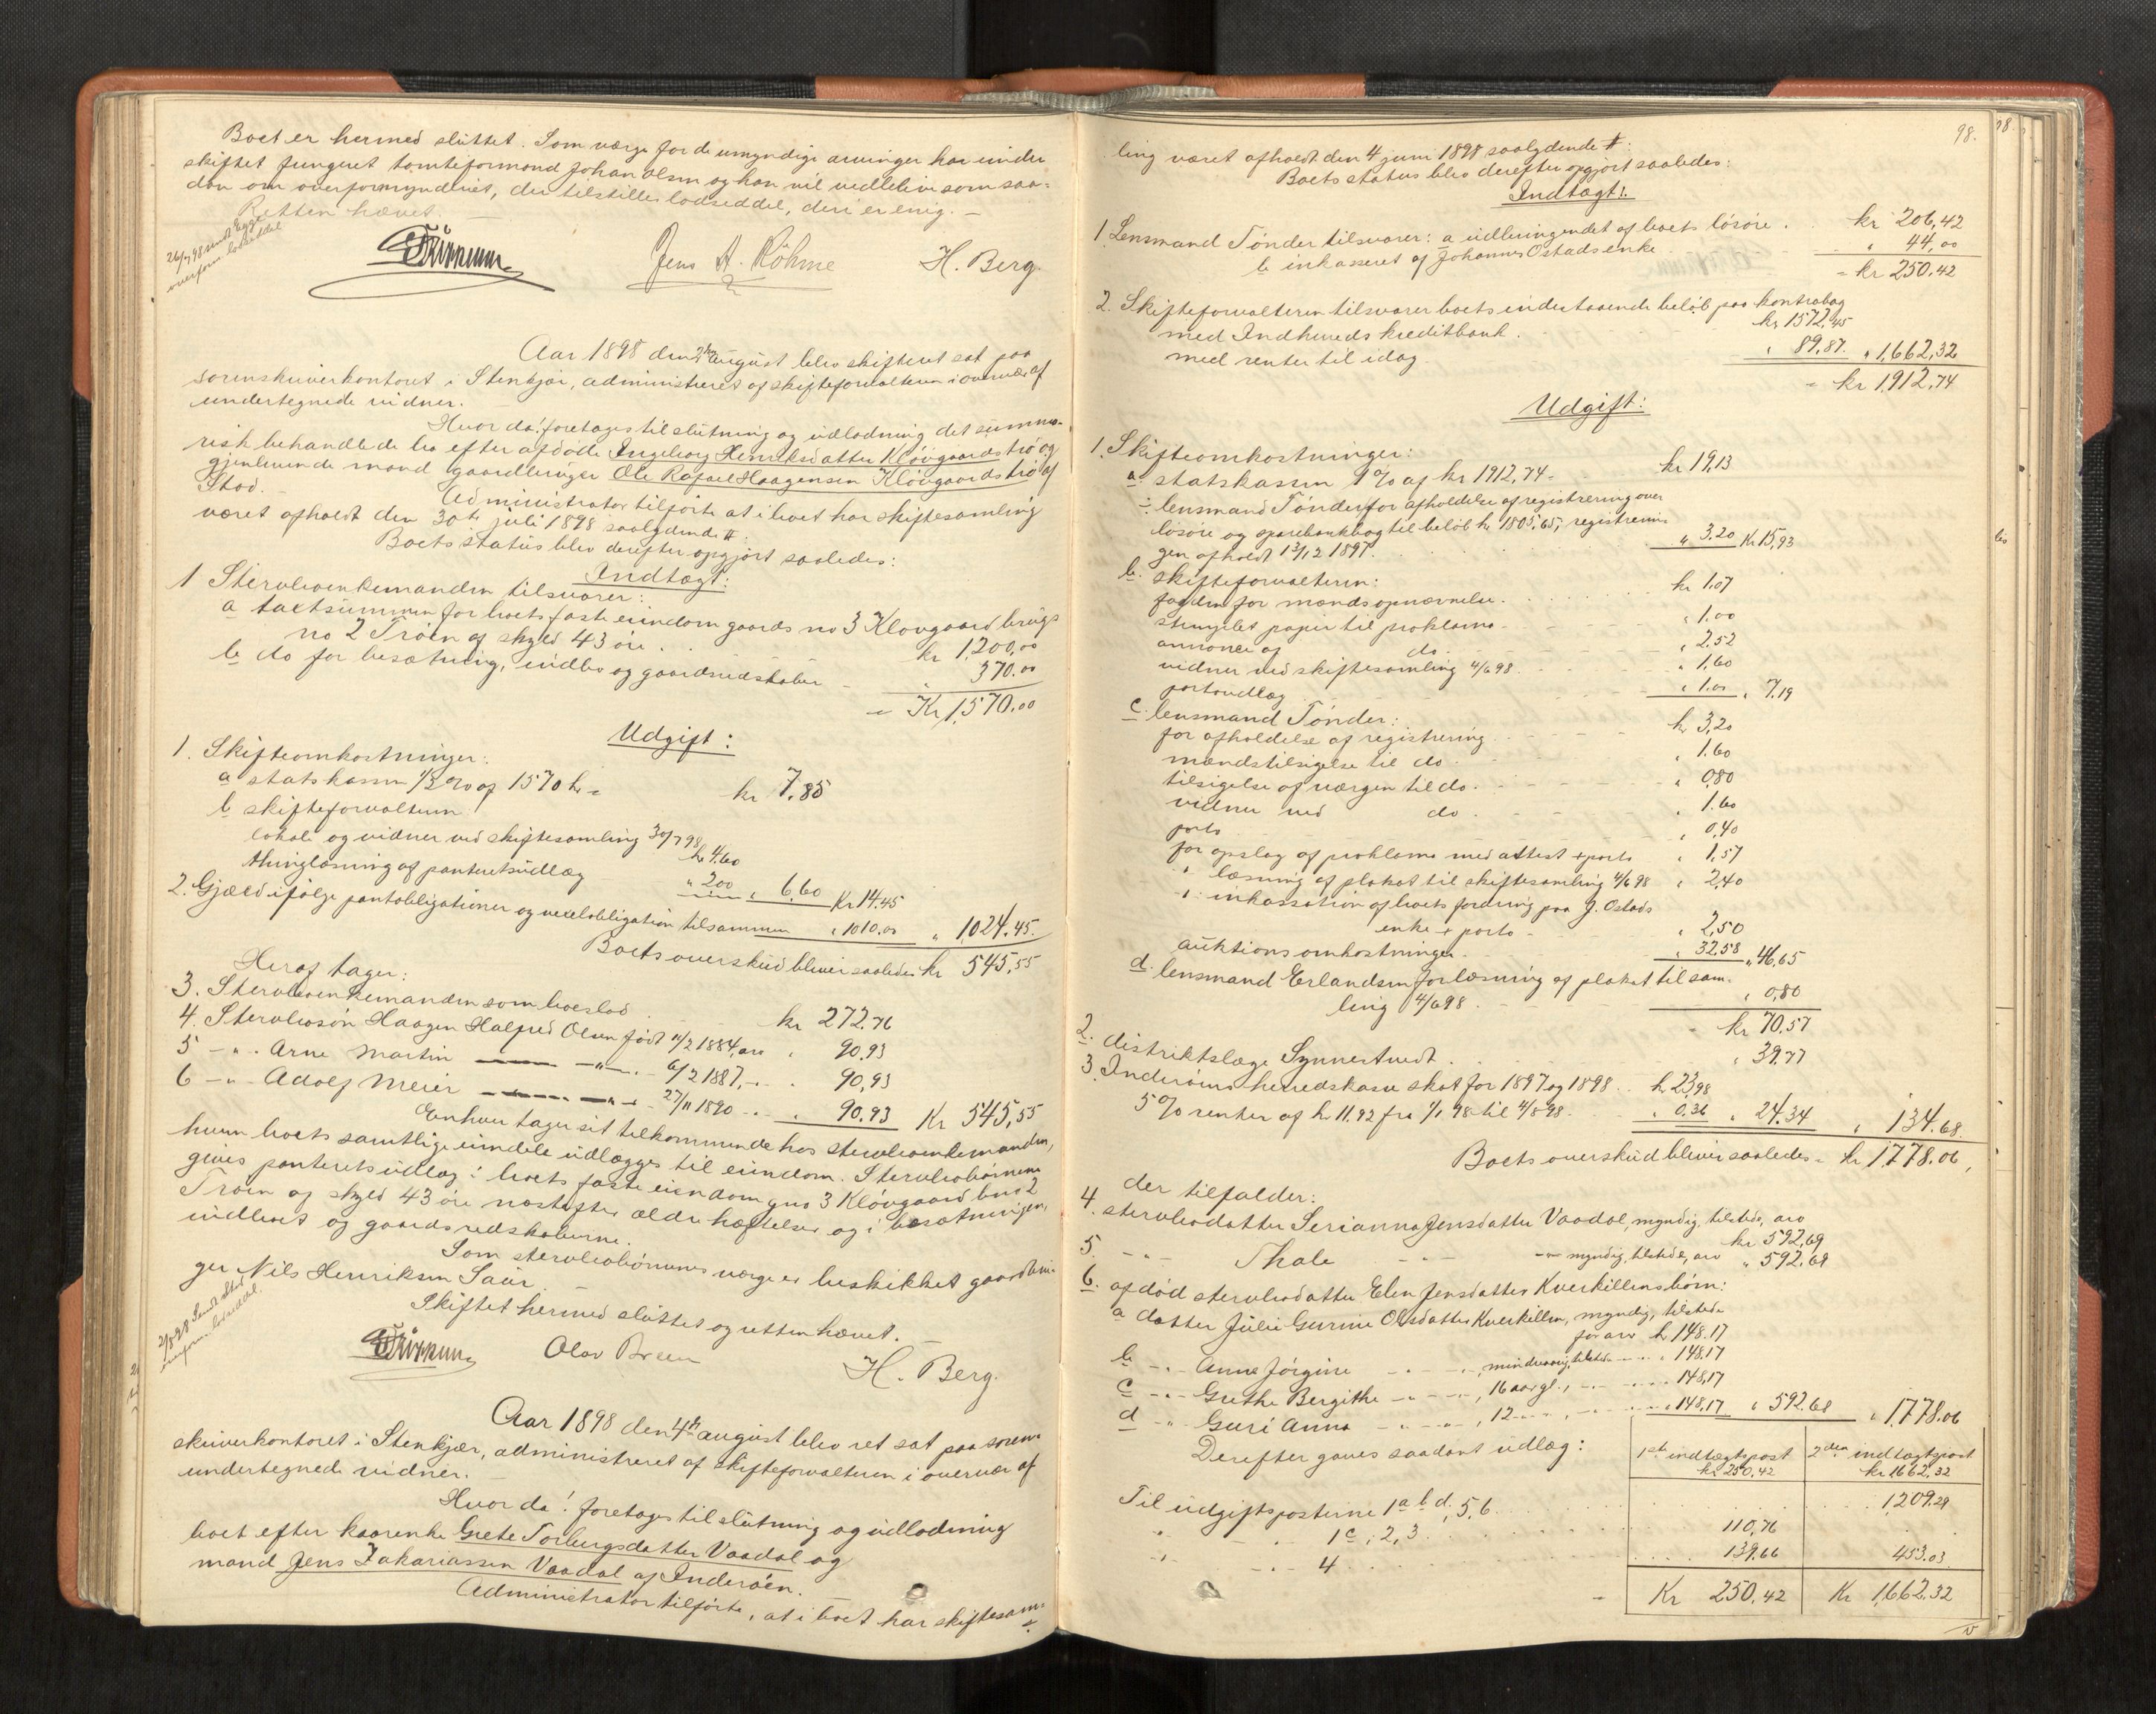 Boet er hermed sluttet. Som værge for de umyndige arvinger har under
skiftet fungeret tomteformand Johan Olsen og han vil vedblive som saa-
dan om overformynderiet, der tilstilles lodseddel, deri er enig. —
Retten hævet. —
26/7 98 sendt Egge
overform. lodseddel
Jens A. Röhme
H. Berg.
Aar 1898 den 2den august blev skifteret sat paa
sorenskriverkontoret i Stenkjær, administreret af skifteforvalteren i overvær af
undertegnede vidner.
Hvor da! foretoges til slutning og udlodning det summa-
risk behandlede bo efter afdøde Ingeborg Henriksdatter Kløvgaardstrø og
gjenlevende mand gaardbruger Ole Rafael Haagensen Kløvgaardstrø af
Stod. —
Administrator tilførte at i boet har skiftesamling
været afholdt den 30te juli 1898 saalydende #:
Boets status blev derefter opgjort saaledes:
Indtægt:
1 Stervboenkemanden tilsvarer:
a taxtsummen for boets faste eiendom gaards no 3 Kløvgaard brugs
no 2 Trøen af skyld 43 øre . . kr 1,200,00
b do for besætning, indbo og gaardsredskaber — " 370.00
= Kr 1,570.00
Udgift:
1. Skifteomkostninger:
a statskassen 1/2 % af 1570 kr = kr 7.85
b skifteforvalteren
lokale og vidner ved skiftesamling 30/7 98, kr 4.60
thinglæsning af panteretsudlæg " 2.00 " 6.60 Kr 14.45
2. Gjæld ifølge pantobligationer og vexelobligation tilsammen " 1010.00 " 1,024.45.
Boets overskud bliver saaledes kr 545,55
Heraf tager:
3. Stervboenkemanden som boeslod . kr 272.76
4. Stervbosøn Haagen Halfred Olsen født 11/2 1884, arv " 90.93
5 — " — Arne Martin — " — 6/2 1887, — " — 90,93
6 — " — Adolf Meier — " — 27/11 1890 — " — 90.93 Kr 545,55
Enhver tager sit tilkommende hos stervboenkemanden,
hvem boets samtlige eiendele udlægges til eiendom. Stervbobørnene
gives panteretsudlæg i boets faste eiendom gno 3 Kløvgaard bno 2
Trøen af skyld 43 øre næstefter ældre hæftelser og i besætningen,
indboet og gaardsredskaberne.
Som stervbobørnenes værge er beskikket gaardbru-
ger Nils Henriksen Saur.
Skiftet hermed sluttet og retten hævet. —
2/8 98 sendt Stod
overform. lodseddel.
Olav Breen
H. Berg.
Aar 1898 den 4de august blev ret sat paa soren-
skriverkontoret i Stenkjær, administreret af skifteforvalteren i overvær af
undertegnede vidner. —
Hvor da! foretoges til slutning og udlodning
boet efter kaarenke Grete Torbergsdatter Vaadal og
mand Jens Zakariassen Vaadal af Inderøen.
Administrator tilførte, at i boet har skiftesam-
98.
ling været afholdt den 4 juni 1898 saalydende #:
Boets status blev derefter opgjort saaledes:
Indtægt:
1. Lensmand Tønder tilsvarer: a udbringendet af boets løsøre . kr 206,42
b inkasseret af Johannes Ostads enke " 44,00
= kr 250.42
2. Skifteforvalteren tilsvarer boets indestaaende beløb paa kontrabog
med Indherreds kreditbank . kr 1572,45
med renter til idag " 89,87. " 1,662,32
= kr 1,912,74
Udgift:
1. Skifteomkostninger:
a. statskassen 1% af kr 1912,74 = kr 19,13
÷ lensmand Tønder for afholdelse af registrering over
løsøre og sparebankbog til beløb kr 1805,65, registrerin-
gen afholdt 13/12 1897. " 3.20 Kr 15,93
b. skifteforvalteren:
fogden for mændsopnævnelse . . . kr 1.07
stemplet papir til proklama — " 1.00
annonce af do. — " 2,52
vidner ved skiftesamling 4/6 98 . " 1,60
portoudlæg " 1.00 " 7.19
c. lensmand Tønder:
for afholdelse af registrering . . kr 3,20
mændstilsigelse til do . " 1.60
tilsigelse af værgen til do . " 0,80
vidner ved do . " 1.60
porto " 0,40
for opslag af proklama med attest + porto " 1,57
" læsning af plakat til skiftesamling 4/6 98 " 2,40
" inkassation af boets fordring paa J. Ostads
enke + porto — " 2,50
auktionsomkostninger . " 32.58 " 46,65
d. lensmand Erlandsen for læsning af plakat til sam-
ling 4/6 98 . " 0,80
= kr 70.57
2. distriktslæge Synnestvedt . " 39.77
3. Inderøens herredskasse skat for 1897 og 1898 . kr 23,98
5% renter af kr 11.92 fra 1/1 98 til 4/8 98 . " 0.36 " 24.34 " 134.68.
Boets overskud bliver saaledes = kr 1,778.06,
der tilfalder:
4. stervbodatter Serianna Jensdatter Vaadal, myndig, tilstede, arv kr 592,69
5. — " — Thale — " — myndig, tilstede, arv " 592.69
6. afdød stervbodatter Elen Jensdatter Kverkillens børn:
a datter Julie Gurine Olsdatter Kverkillen, myndig, tilstede
for arv kr 148.17
b — " — Anne Jørgine — " — mindreaarig, tilstede — " 148.17
c — " — Grethe Bergithe — " — , 16 aar gl., — " 148,17
d — " — Guri Anna — " — , 12 — " — " 148,17 " 592.68 " 1,778.06
Derefter gaves saadant udlæg:
1ste indtægtspost kr 250,42
2den indtægtspost kr 1662,32
Til udgiftsposterne 1 a b d, 5, 6 . . . 1,209.29
" — " — 1 c, 2, 3 . . . 110,76
" — " — 4 . . . 139.66 453.03
= Kr 250,42 Kr 1,662.32